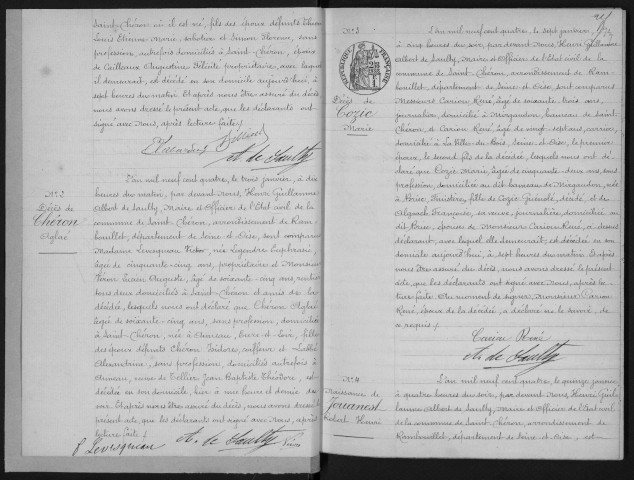 Saint-Chéron où il est né, fils des époux défunts
Louis Etienne Marie, sabotier et Simon Florence, sans
profession, autrefois domiciliés à Saint-Chéron, époux
de Caillaux Augustine Félicité propriétaire, avec laquelle
il demeurait, est décédé en son domicile aujourd'hui, à
sept heures du matin. Et après nous être assuré du décès
nous avons dressé le présent acte, que les déclarants ont
signé avec Nous, après lecture faite.
A. de Saulty
N° 2
Décès de
Chéron
Aglaé
L'an mil neuf cent quatre, le trois janvier, à dix
heures du matin, par devant Nous, Henri Guillaume
Albert de Saulty, Maire et Officier de l'Etat civil de la
commune de Saint-Chéron, arrondissement de Ram-
bouillet, département de Seine et Oise, sont comparus
Madame Levesqueau, née Legendre Euphrasie,
âgée de cinquante-cinq ans, propriétaire et Monsieur
Véron Lucien Auguste, âgé de soixante-cinq ans, rentier
tous deux domiciliés à Saint-Chéron et amis de la
décédée, lesquels nous ont déclaré que Chéron Aglaé
âgée de soixante-cinq ans, sans profession, domiciliée
à Saint-Chéron, née à Auneau, Eure-et-Loir, fille
des époux défunts Chéron Isidore, coiffeur et
sans profession, domiciliés autrefois à
Auneau, veuve de Tellier Jean Baptiste Théodore, est
décédée en son domicile, hier à une heure et demie du
soir. Et après nous être assuré du décès, nous avons dressé le
présent acte, que les déclarants ont signé avec Nous, après
lecture faite.
f Levesqueau A. de Saulty Véron
N° 3
Décès de
Cozic
Marie
REPUBLIQUE FRANÇAISE
L'an mil neuf cent quatre, le sept janvier,
à cinq heures du soir, par devant Nous Henri Guillaume
Albert de Saulty, Maire et Officier de l'Etat civil de la
commune de Saint-Chéron, arrondissement de Ram-
bouillet, département de Seine et Oise, sont comparus
Messieurs Cariou René, âgé de soixante-trois ans,
journalier, domicilié à Mirgaudon, hameau de Saint-
Chéron, et Cariou René, âgé de vingt-sept ans, carrier,
domicilié à La Ville-du-Bois, Seine et Oise, le premier
époux, le second fils de la décédée, lesquels nous ont dé-
claré que Cozic Marie, âgée de cinquante-deux ans, sans
profession, domiciliée au dit hameau de Mirgaudon, née
à Briec, Finistère, fille de Cozic Guénolé, décédé, et de
Françoise, sa veuve, journalière, domiciliée au
dit Briec, épouse de Monsieur Cariou René, ci-devant
déclarant, avec laquelle elle demeurait, est décédée en son
domicile aujourd'hui, à sept heures du matin. Et après
nous être assuré du décès, nous avons dressé le présent acte
que les déclarants ont signé avec Nous, après lec-
ture faite. Au moment de signer Monsieur Cariou
René, époux de la décédée, a déclaré ne le savoir, de
ce requis.
Cariou René
A. de Saulty
N° 4
Naissance de
Jouanest
Robert Henri
L'an mil neuf cent quatre, le quinze janvier
à quatre heures du soir, par devant Nous, Henri Guil-
laume Albert de Saulty, Maire et Officier de l'Etat civil
de la commune de Saint-Chéron, arrondissement de
Rambouillet, département de Seine et Oise, est